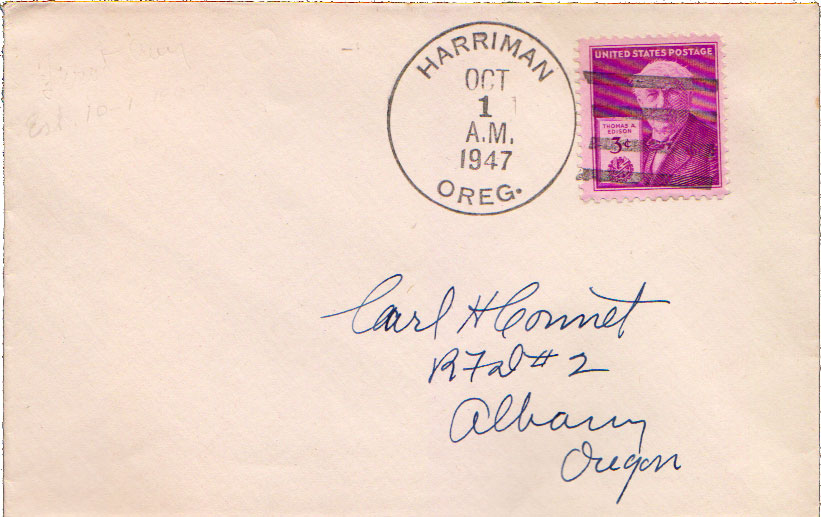 HARRIMAN
OCT
1
A.M.
1947
OREG.
UNITED STATES POSTAGE
THOMAS A.
EDISON
3¢
Carl H Connet
RFD # 2
Albany
Oregon
Est. 10-1